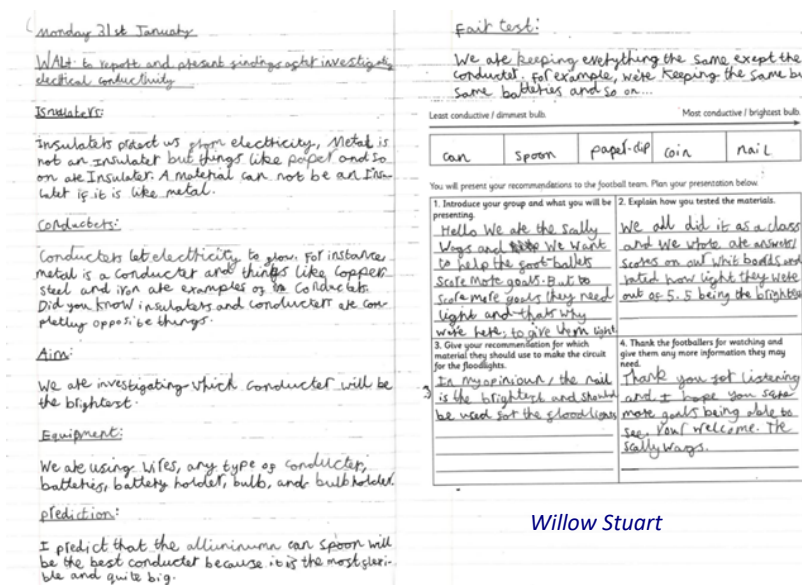 Monday 31st January
WALt to report and present findings after investigating
electical conductivity
Insulaters:
Insulaters protect us from electricity, Metal is
not an insulater but things like paper and so
on are Insulater. A material can not be an Insu-
later if it is like metal.
Conducters:
Conducters let electricity to flow. For instance
metal is a conducter and things like copper
steel and iron are examples of conducters.
Did you know insulaters and conducters are com-
pletly opposite things.
Aim:
We are investigating which conducter will be
the brightest.
Equipment:
We are using wires, any type of conducter,
batteries, battery holder, bulb, and bulb holder.
prediction:
I predict that the alliuninumn can spoon will
be the best conducter because it is the most flexi-
ble and quite big.
Fair test:
We are keeping everything the same exept the
conducter. For example, we're keeping the same bu
same batteries and so on...
Least conductive / dimmest bulb. Most conductive / brightest bulb.
can spoon paper-clip coin nail
You will present your recommendations to the football team. Plan your presentation below.
1. Introduce your group and what you will be
presenting.
Hello We are the Scally
Wags and We want
to help the foot-ballers
score more goals. But to
score more goals they need
light and thats why
we're here, to give them light.
2. Explain how you tested the materials.
We all did it as a class
and we wrote are answers/
scores on our whit boards and
rated how light they were
out of 5. 5 being the brightest
3. Give your recommendation for which
material they should use to make the circuit
for the floodlights.
In my opinioun, the nail
is the brightest and should
be used for the floodlights
4. Thank the footballers for watching and
give them any more information they may
need.
Thank you for listening
and I hope you save
more goals being able to
see. Your welcome. The
scally wags.
Willow Stuart